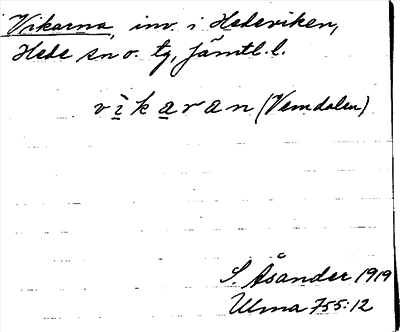 Vikarna, inv. i Hedeviken,
Hede sn o. tg, Jämtl. l.
vìkaran (Vemdalen)
S. Åsander 1919
Ulma 755:12